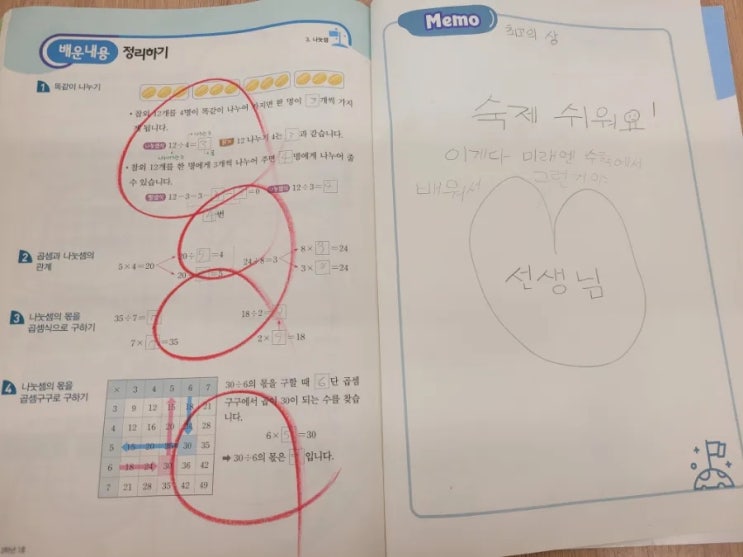 배운내용 정리하기
3. 나눗셈
1 똑같이 나누기
• 참외 12개를 4명이 똑같이 나누어 가지면 한 명이 3개씩 가지
게 됩니다.
나눗셈식 12÷4=3 읽기 12 나누기 4는 3과 같습니다.
• 참외 12개를 한 명에게 3개씩 나누어 주면 4명에게 나누어 줄
수 있습니다.
뺄셈식 12-3-3-3-3=0 나눗셈식 12÷3=4
4번
2 곱셈과 나눗셈의
관계
5×4=20
20÷5=4
24÷8=3
8×3=24
3×8=24
3 나눗셈의 몫을
곱셈식으로 구하기
35÷7=
18÷2=9
7× =35
2×9=18
4 나눗셈의 몫을
곱셈구구로 구하기
× 3 4 5 6 7
3 9 12 15 18 21
4 12 16 20 24 28
5 15 20 25 30 35
6 18 24 30 36 42
7 21 28 35 42 49
30÷6의 몫을 구할 때 6단 곱셈
구구에서 곱이 30이 되는 수를 찾습
니다.
6×5=30
➡ 30÷6의 몫은 입니다.
Memo
최고의 상
숙제 쉬워요!
이게다 미래엔 수학에서
배워서 그런거야
선생님